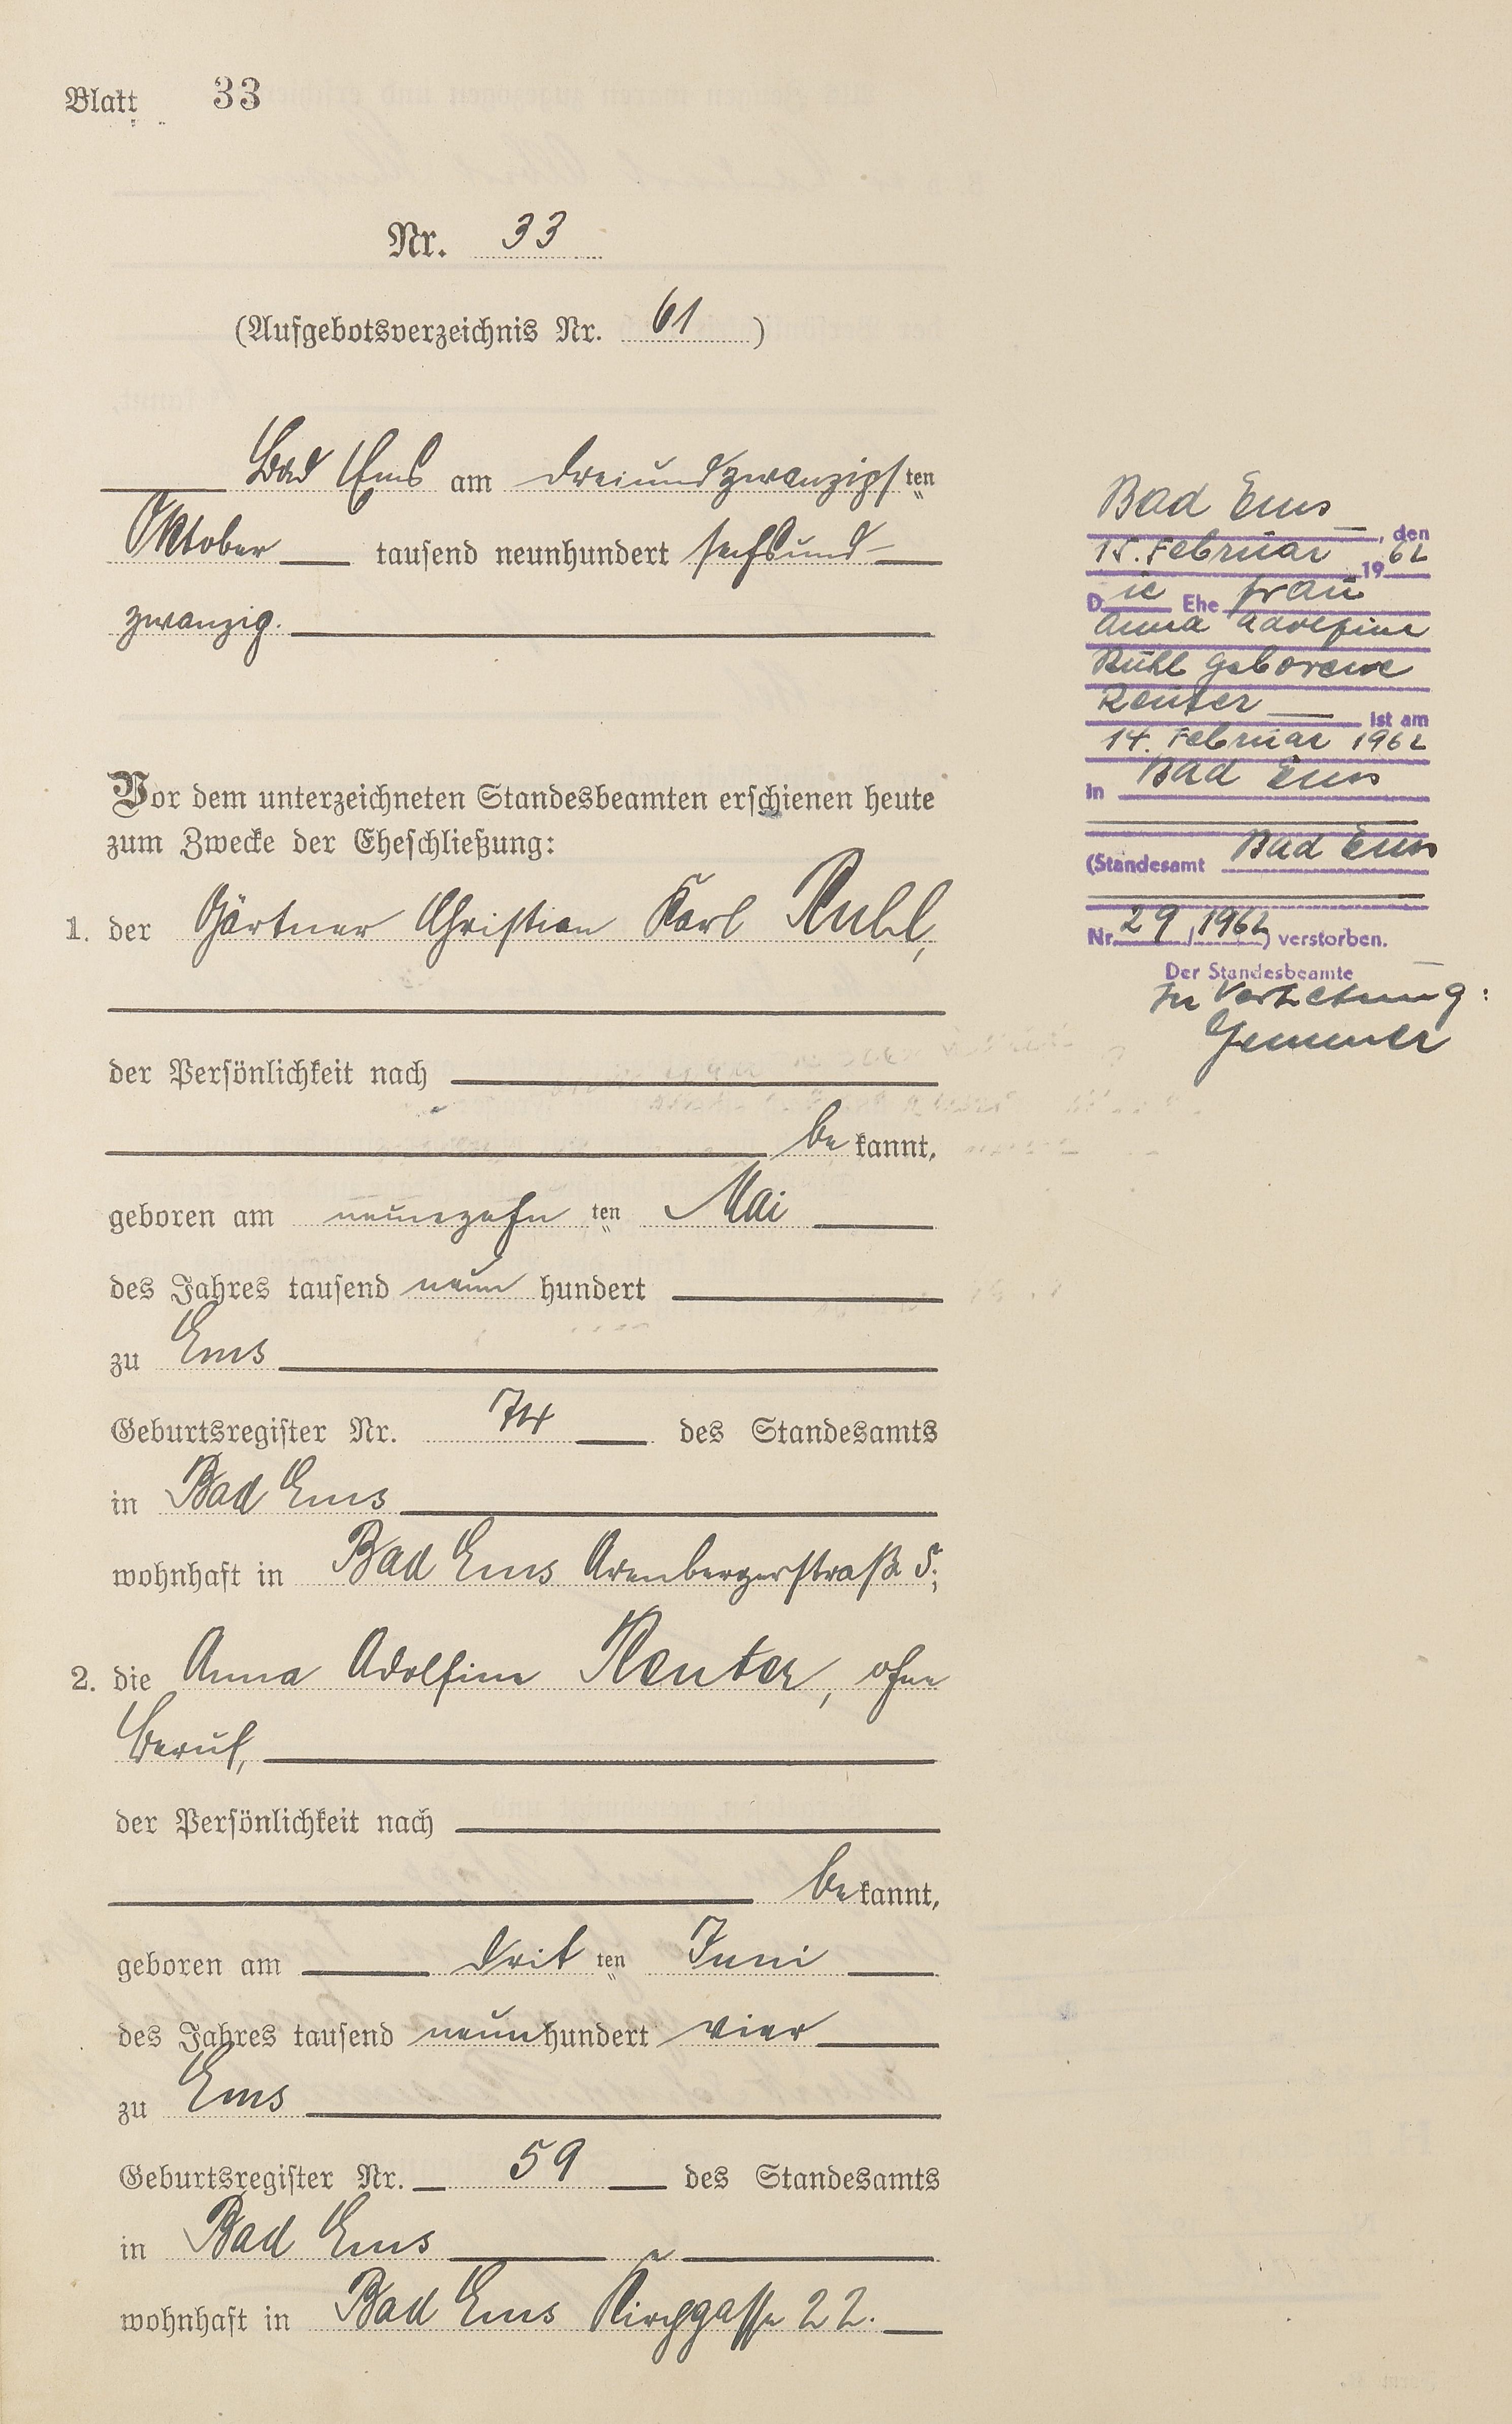 Blatt 33
Nr. 33
(Aufgebotsverzeichnis Nr. 61)
Bad Ems am dreiundzwanzigsten
Oktober tausend neunhundert sechsund-
zwanzig.
Vor dem unterzeichneten Standesbeamten erschienen heute
zum Zwecke der Eheschließung:
1. der Gärtner Christian Karl Ruhl,
der Persönlichkeit nach
bekannt,
geboren am neunzehnten Mai
des Jahres tausend neunhundert
zu Ems
Geburtsregister Nr. 74 des Standesamts
in Bad Ems
wohnhaft in Bad Ems Arenbergerstraße 5;
2. die Anna Adolfine Reuter, ohne
Beruf,
der Persönlichkeit nach
bekannt,
geboren am dritten Juni
des Jahres tausend neunhundert vier
zu Ems
Geburtsregister Nr. 59 des Standesamts
in Bad Ems
wohnhaft in Bad Ems Kirchgasse 22.
Bad Ems, den
15. Februar 1962
Die Ehefrau
Anna Adolfine
Ruhl geborene
Reuter ist am
14. Februar 1962
in Bad Ems
(Standesamt Bad Ems
Nr. 29/1962) verstorben.
Der Standesbeamte
In Vertretung:
Gemmer